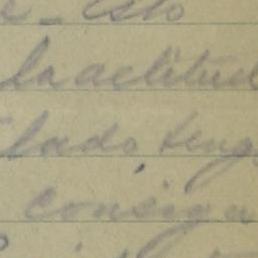 Esto
la actitud
lado teng
consigu